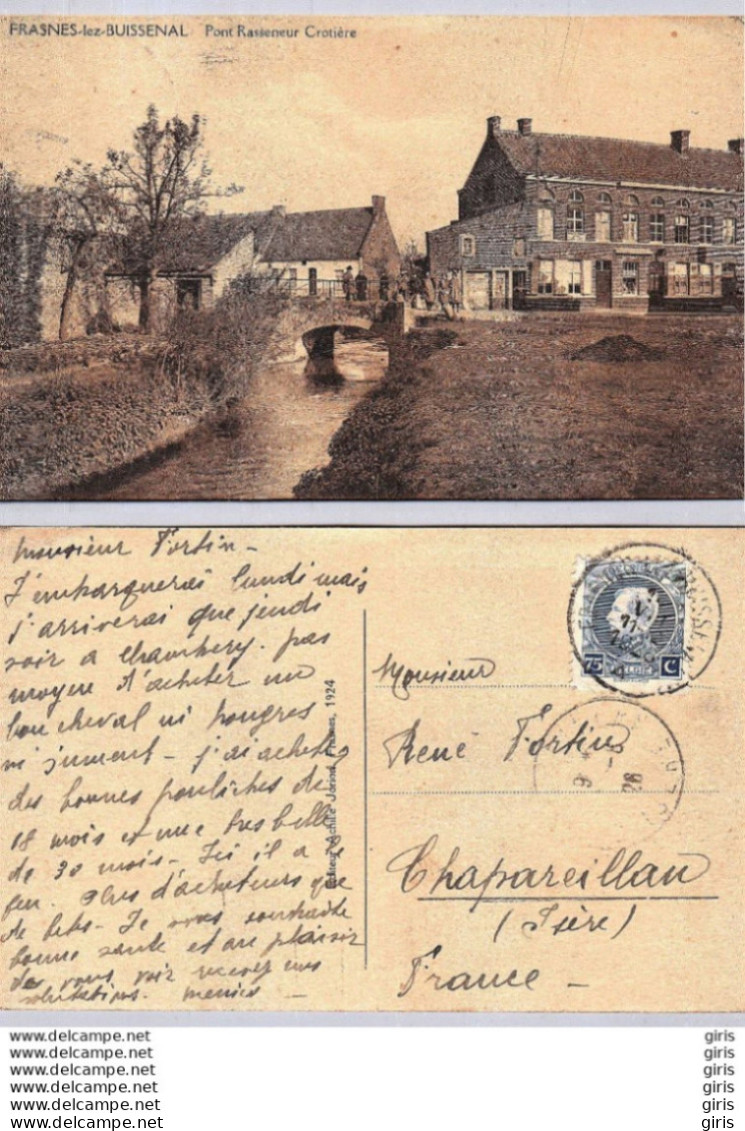 FRASNES-lez-BUISSENAL Pont Rasseneur Crotière
Monsieur Fortin -
J'embarquerai lundi mais
j'arriverai que jeudi
soir a Chambery. pas
moyen d'acheter un
bon cheval ni hongres
ni jument - j'ai acheté
des bonnes pouliches de
18 mois et une tres belle
de 30 mois - Ici il a
peu. Plus d'acheteurs que
de bete - Je vous souhaite
bonne santé et au plaisir
de vous voir recevez mes
salutations.
Frasnes, 1924
75 C
Monsieur
René Fortin
Chapareillan
(Isère)
France -
www.delcampe.net giris
www.delcampe.net giris
www.delcampe.net giris
www.delcampe.net giris
www.delcampe.net giris
www.delcampe.net giris